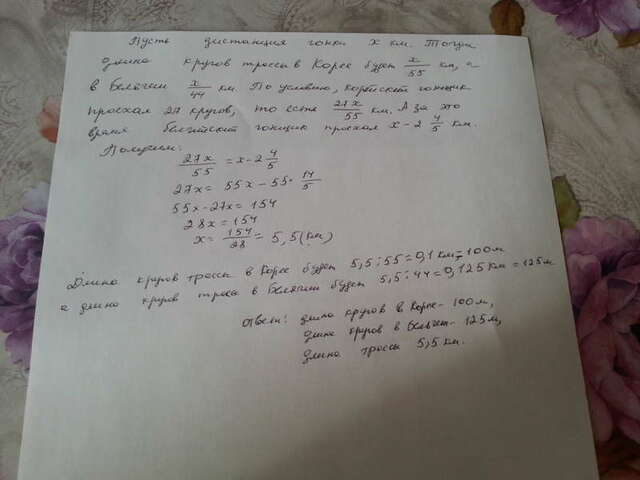 Пусть дистанция гонки x км. Тогда
длина кругов трасса в Корее будет x/55 км, а
в Бельгии x/44 км. По условию, корейский гонщик
проехал 27 кругов, то есть 27x/55 км. А за это
время бельгийский гонщик проехал x - 2 4/5 км.
Получим:
27x/55 = x - 2 4/5
27x = 55x - 55 · 14/5
55x - 27x = 154
28x = 154
x = 154/28 = 5,5 (км)
Длина кругов трассы в Корее будет 5,5 : 55 = 0,1 км = 100 м
а длина кругов трасса в Бельгии будет 5,5 : 44 = 0,125 км = 125 м
Ответ: длина кругов в Корее - 100 м,
длина кругов в Бельгии - 125 м,
длина трассы 5,5 км.